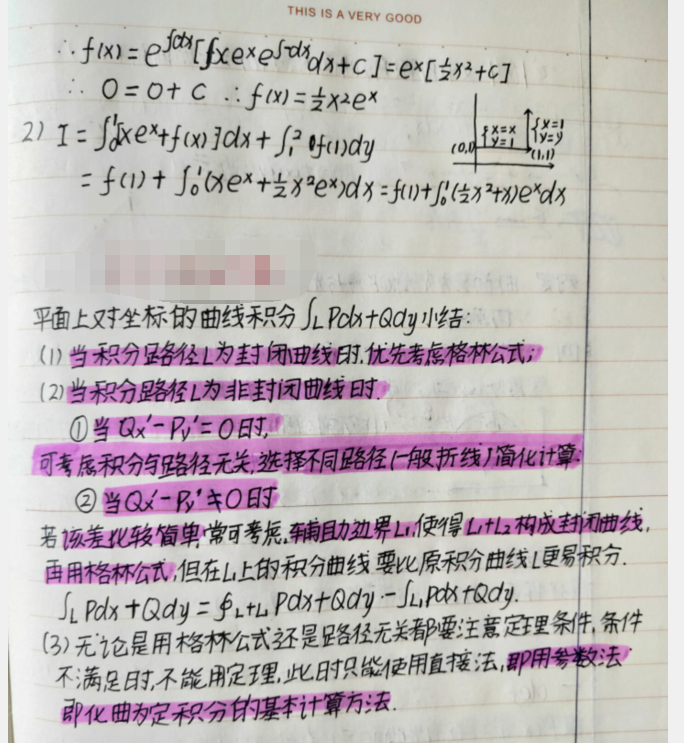 THIS IS A VERY GOOD
∴ f(x) = e^{∫dx}[∫xe^x e^{∫-dx}dx+C] = e^x[½x²+C]
∴ 0 = 0 + C ∴ f(x) = ½x²e^x
2) I = ∫₀¹[xe^x+f(x)]dx + ∫₁² f(1)dy
{x=x y=1
{x=1 y=y
(0,1)
(1,1)
= f(1) + ∫₀¹(xe^x+½x²e^x)dx = f(1)+∫₀¹(½x²+x)e^xdx
平面上对坐标的曲线积分∫_L Pdx+Qdy小结:
(1)当积分路径L为封闭曲线时,优先考虑格林公式;
(2)当积分路径L为非封闭曲线时.
①当Qx′-Py′=0时,
可考虑积分与路径无关,选择不同路径(一般折线)简化计算:
②当Qx′-Py′≠0时
若该差比较简单,常可考虑,辅助边界L₁,使得L₁+L₂构成封闭曲线,
再用格林公式,但在L₁上的积分曲线要比原积分曲线L更易积分.
∫_L Pdx+Qdy = ∮_{L+L₁} Pdx+Qdy - ∫_{L₁} Pdx+Qdy.
(3)无论是用格林公式还是路径无关都要注意定理条件,条件
不满足时,不能用定理,此时只能使用直接法,即用参数法
即化曲为定积分的基本计算方法.